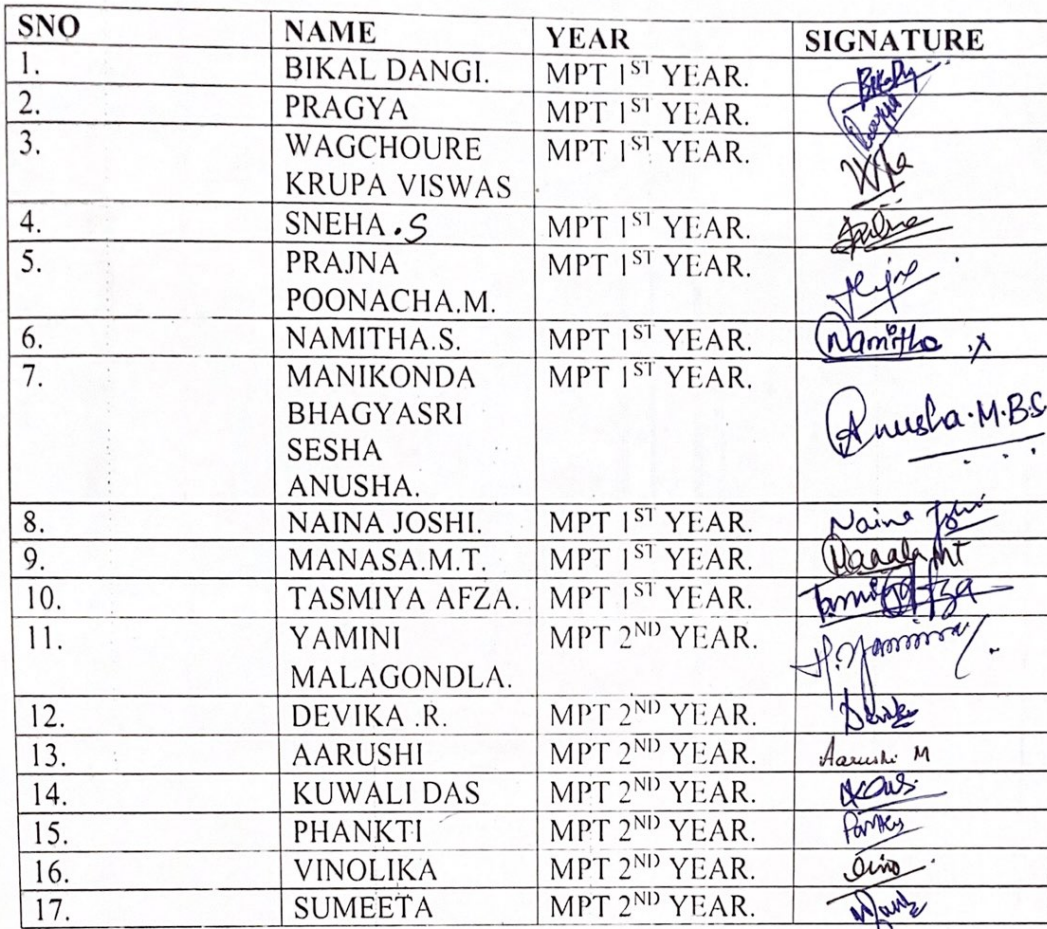 SNO NAME YEAR SIGNATURE
1. BIKAL DANGI. MPT 1ST YEAR.
2. PRAGYA MPT 1ST YEAR.
3. WAGCHOURE MPT 1ST YEAR.
KRUPA VISWAS
4. SNEHA .S MPT 1ST YEAR.
5. PRAJNA MPT 1ST YEAR.
POONACHA.M.
6. NAMITHA.S. MPT 1ST YEAR. Namitha
7. MANIKONDA MPT 1ST YEAR.
BHAGYASRI Anusha.M.B.S
SESHA
ANUSHA.
8. NAINA JOSHI. MPT 1ST YEAR. Naina Joshi
9. MANASA.M.T. MPT 1ST YEAR.
10. TASMIYA AFZA. MPT 1ST YEAR.
11. YAMINI MPT 2ND YEAR.
MALAGONDLA.
12. DEVIKA .R. MPT 2ND YEAR. Devika
13. AARUSHI MPT 2ND YEAR. Aarushi M
14. KUWALI DAS MPT 2ND YEAR.
15. PHANKTI MPT 2ND YEAR.
16. VINOLIKA MPT 2ND YEAR.
17. SUMEETA MPT 2ND YEAR.